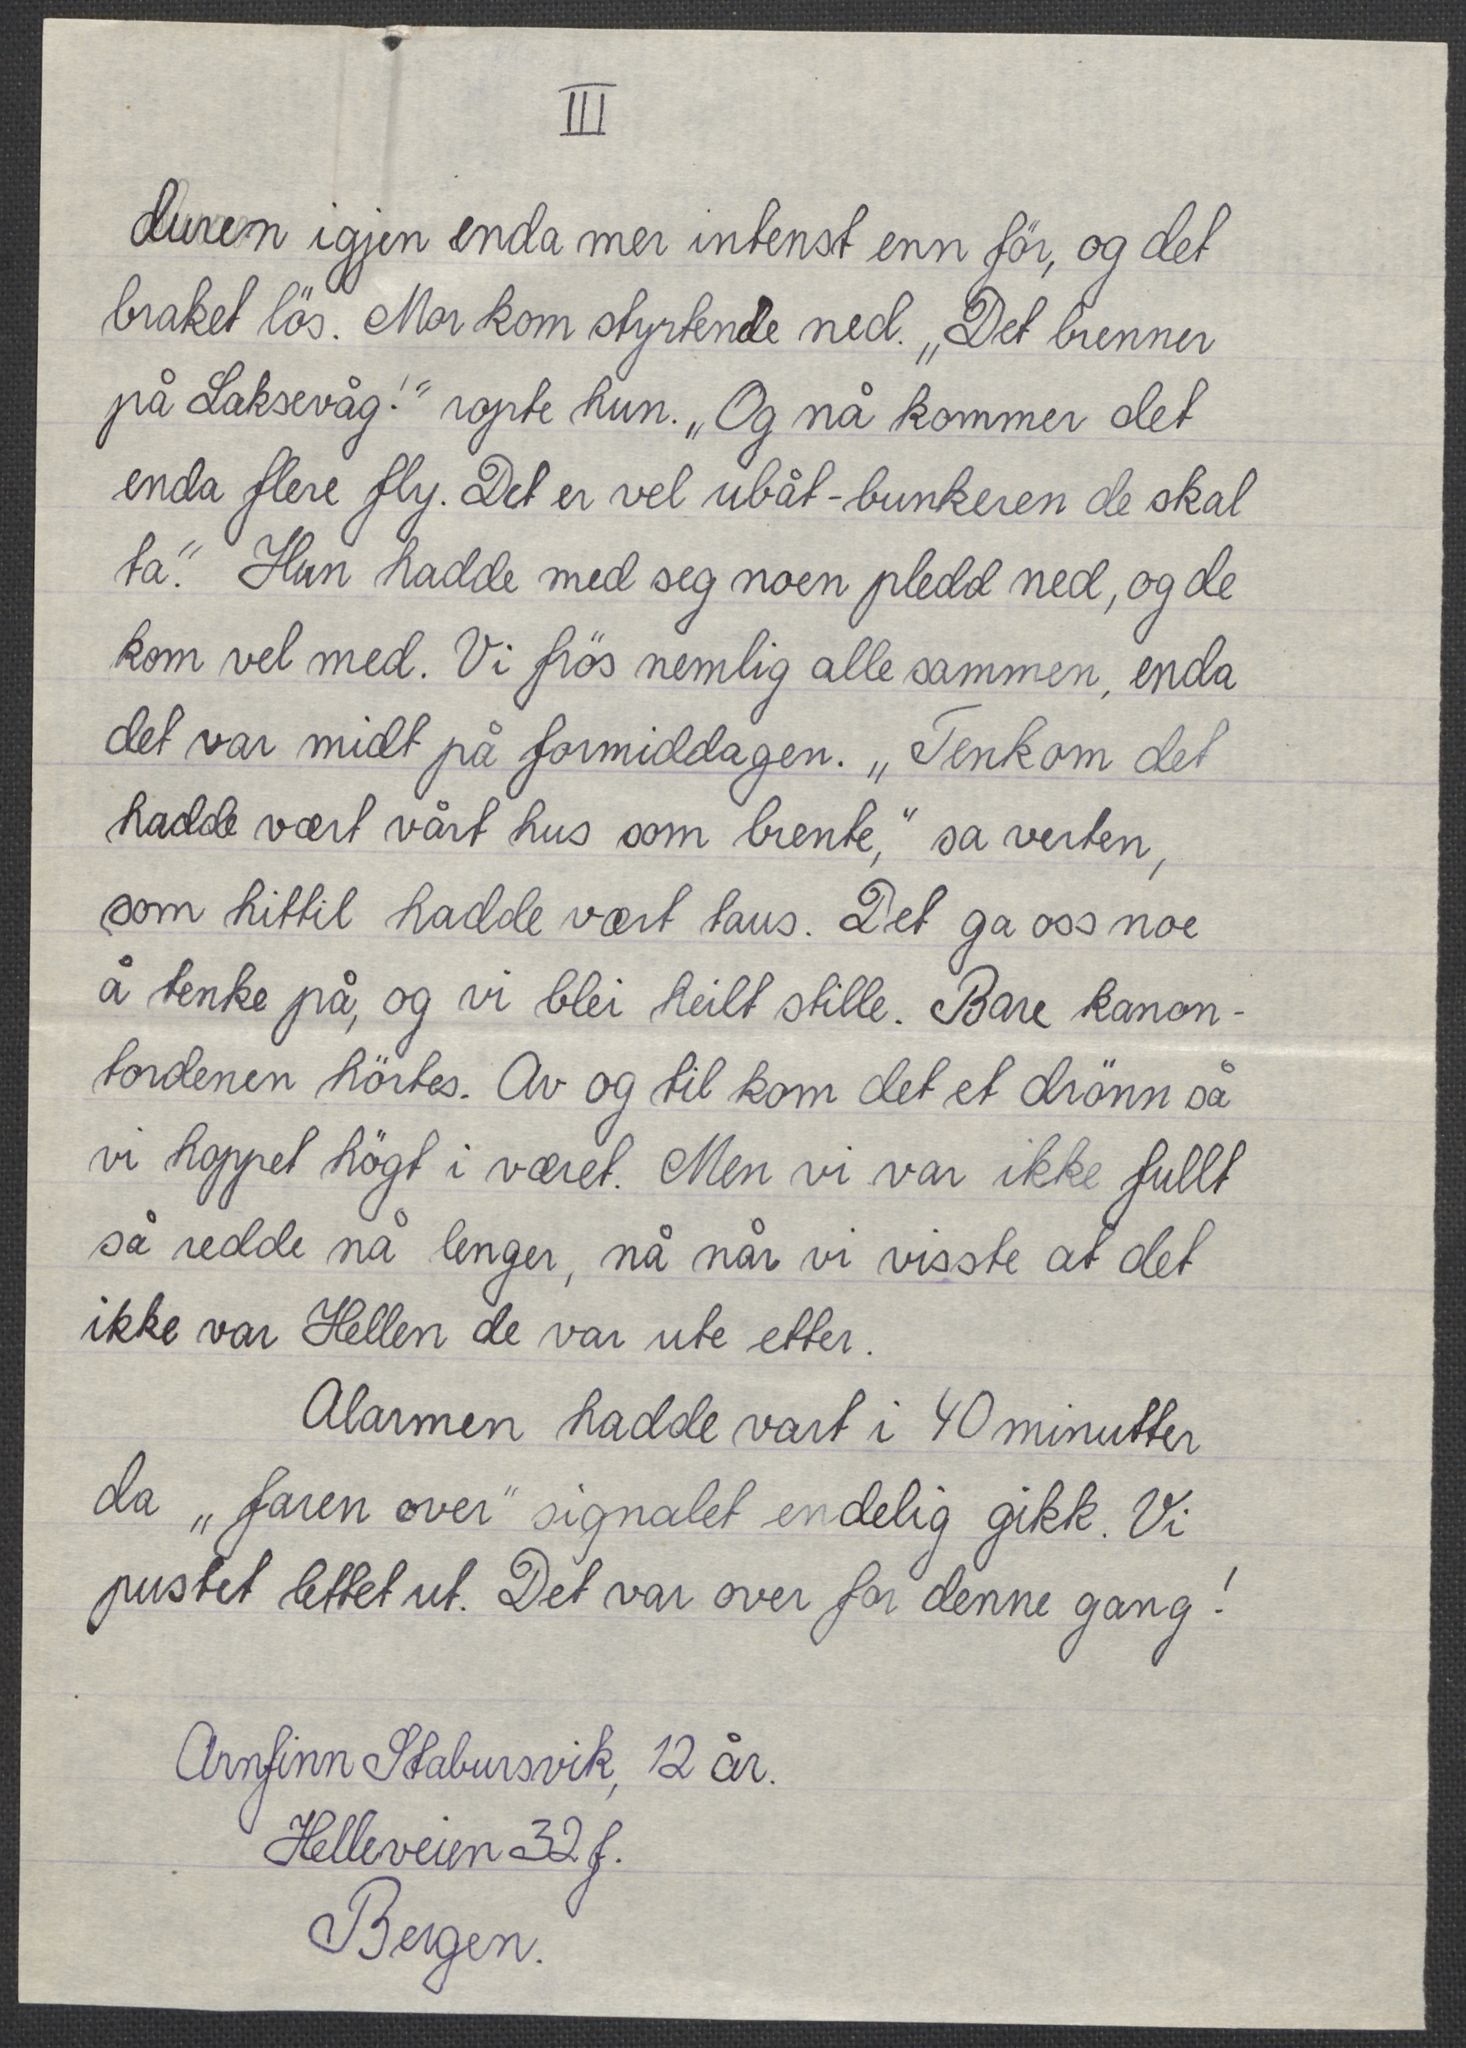 III
duren igjen enda mer intenst enn för, og det
braket lös. Mor kom styrtende ned. „Det brenner
på Laksevåg!“ ropte hun. „Og nå kommer det
enda flere fly. Det er vel ubåt-bunkeren de skal
ta.“ Hun hadde med seg noen pledd ned, og de
kom vel med. Vi frös nemlig alle sammen, enda
det var midt på formiddagen. „Tenk om det
hadde vært vårt hus som brente,“ sa verten,
som hittil hadde vært taus. Det ga oss noe
å tenke på, og vi blei heilt stille. Bare kanon-
tordenen hörtes. Av og til kom det et drönn så
vi hoppet högt i været. Men vi var ikke fullt
så redde nå lenger, nå når vi visste at det
ikke var Hellen de var ute etter.
Alarmen hadde vart i 40 minutter
da „faren over“ signalet endelig gikk. Vi
pustet lettet ut. Det var over for denne gang!
Arnfinn Stabursvik, 12 år.
Helleveien 32 f.
Bergen.